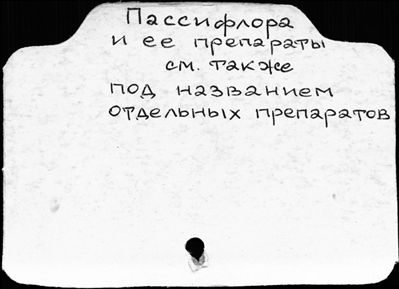 Пассифлора
и ее препараты
см. также
под названием
отдельных препаратов